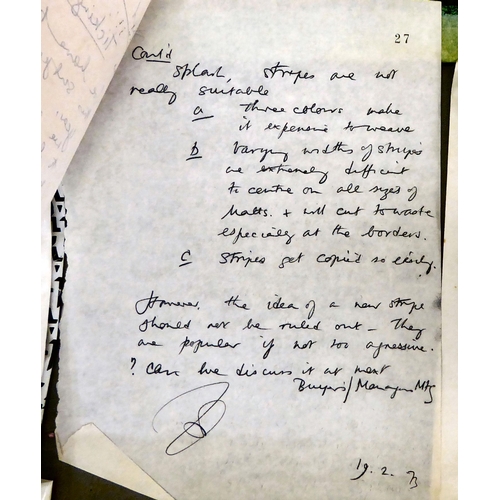 27
Cont'd
splash, stripes are not
really suitable
a three colours make
it expensive to weave
b varying widths of stripes
are extremely difficult
to centre on all sizes of
Matts. & will cut to waste
especially at the borders.
c stripes get copied so easily.
However, the idea of a new stripe
should not be ruled out – They
are popular if not too agressive.
? Can we discuss it at next
Buyers/Managers Mtg
19. 2. 73